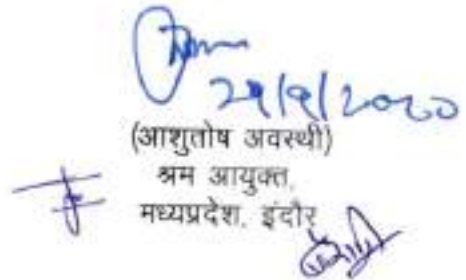 29/9/2020
(आशुतोष अवस्थी)
श्रम आयुक्त,
मध्यप्रदेश, इंदौर